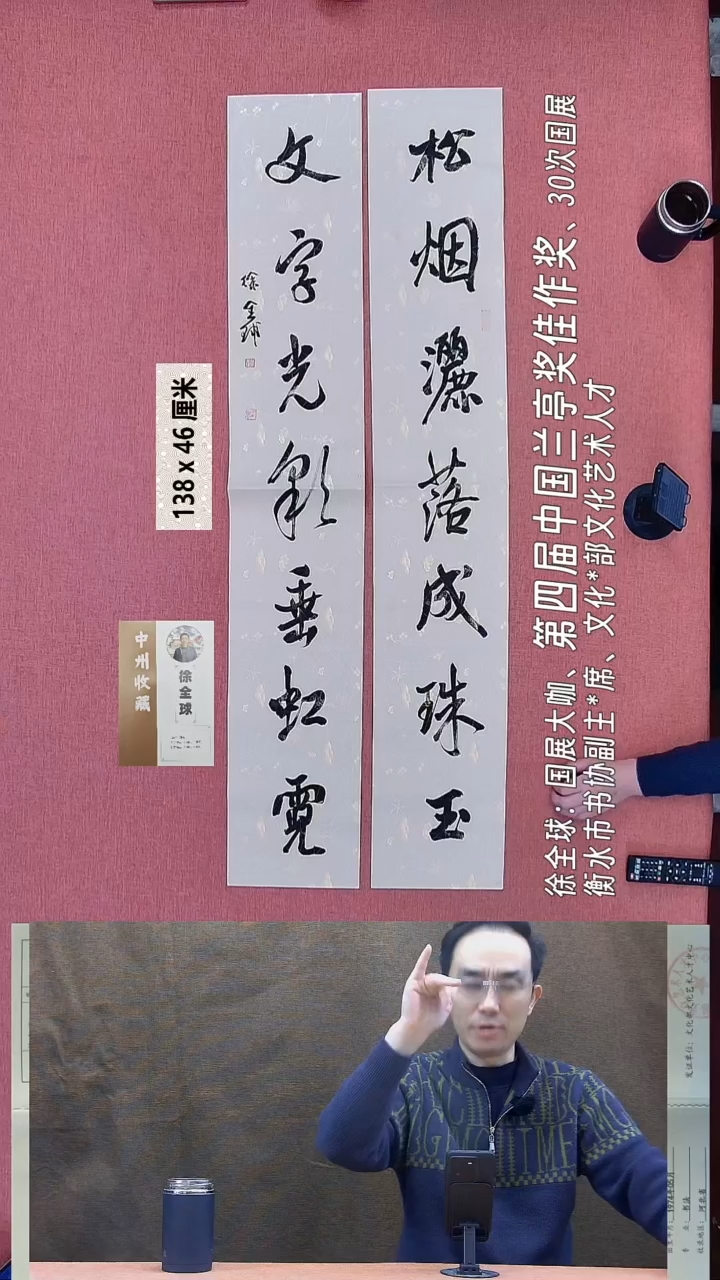 松烟灑落成珠玉
文字光彩垂虹霓
徐全球
138 x 46 厘米
中州收藏
徐全球
徐全球：国展大咖、第四届中国兰亭奖佳作奖、30次国展
衡水市书协副主*席、文化*部文化艺术人才
发证单位：文化部文化艺术人才中心